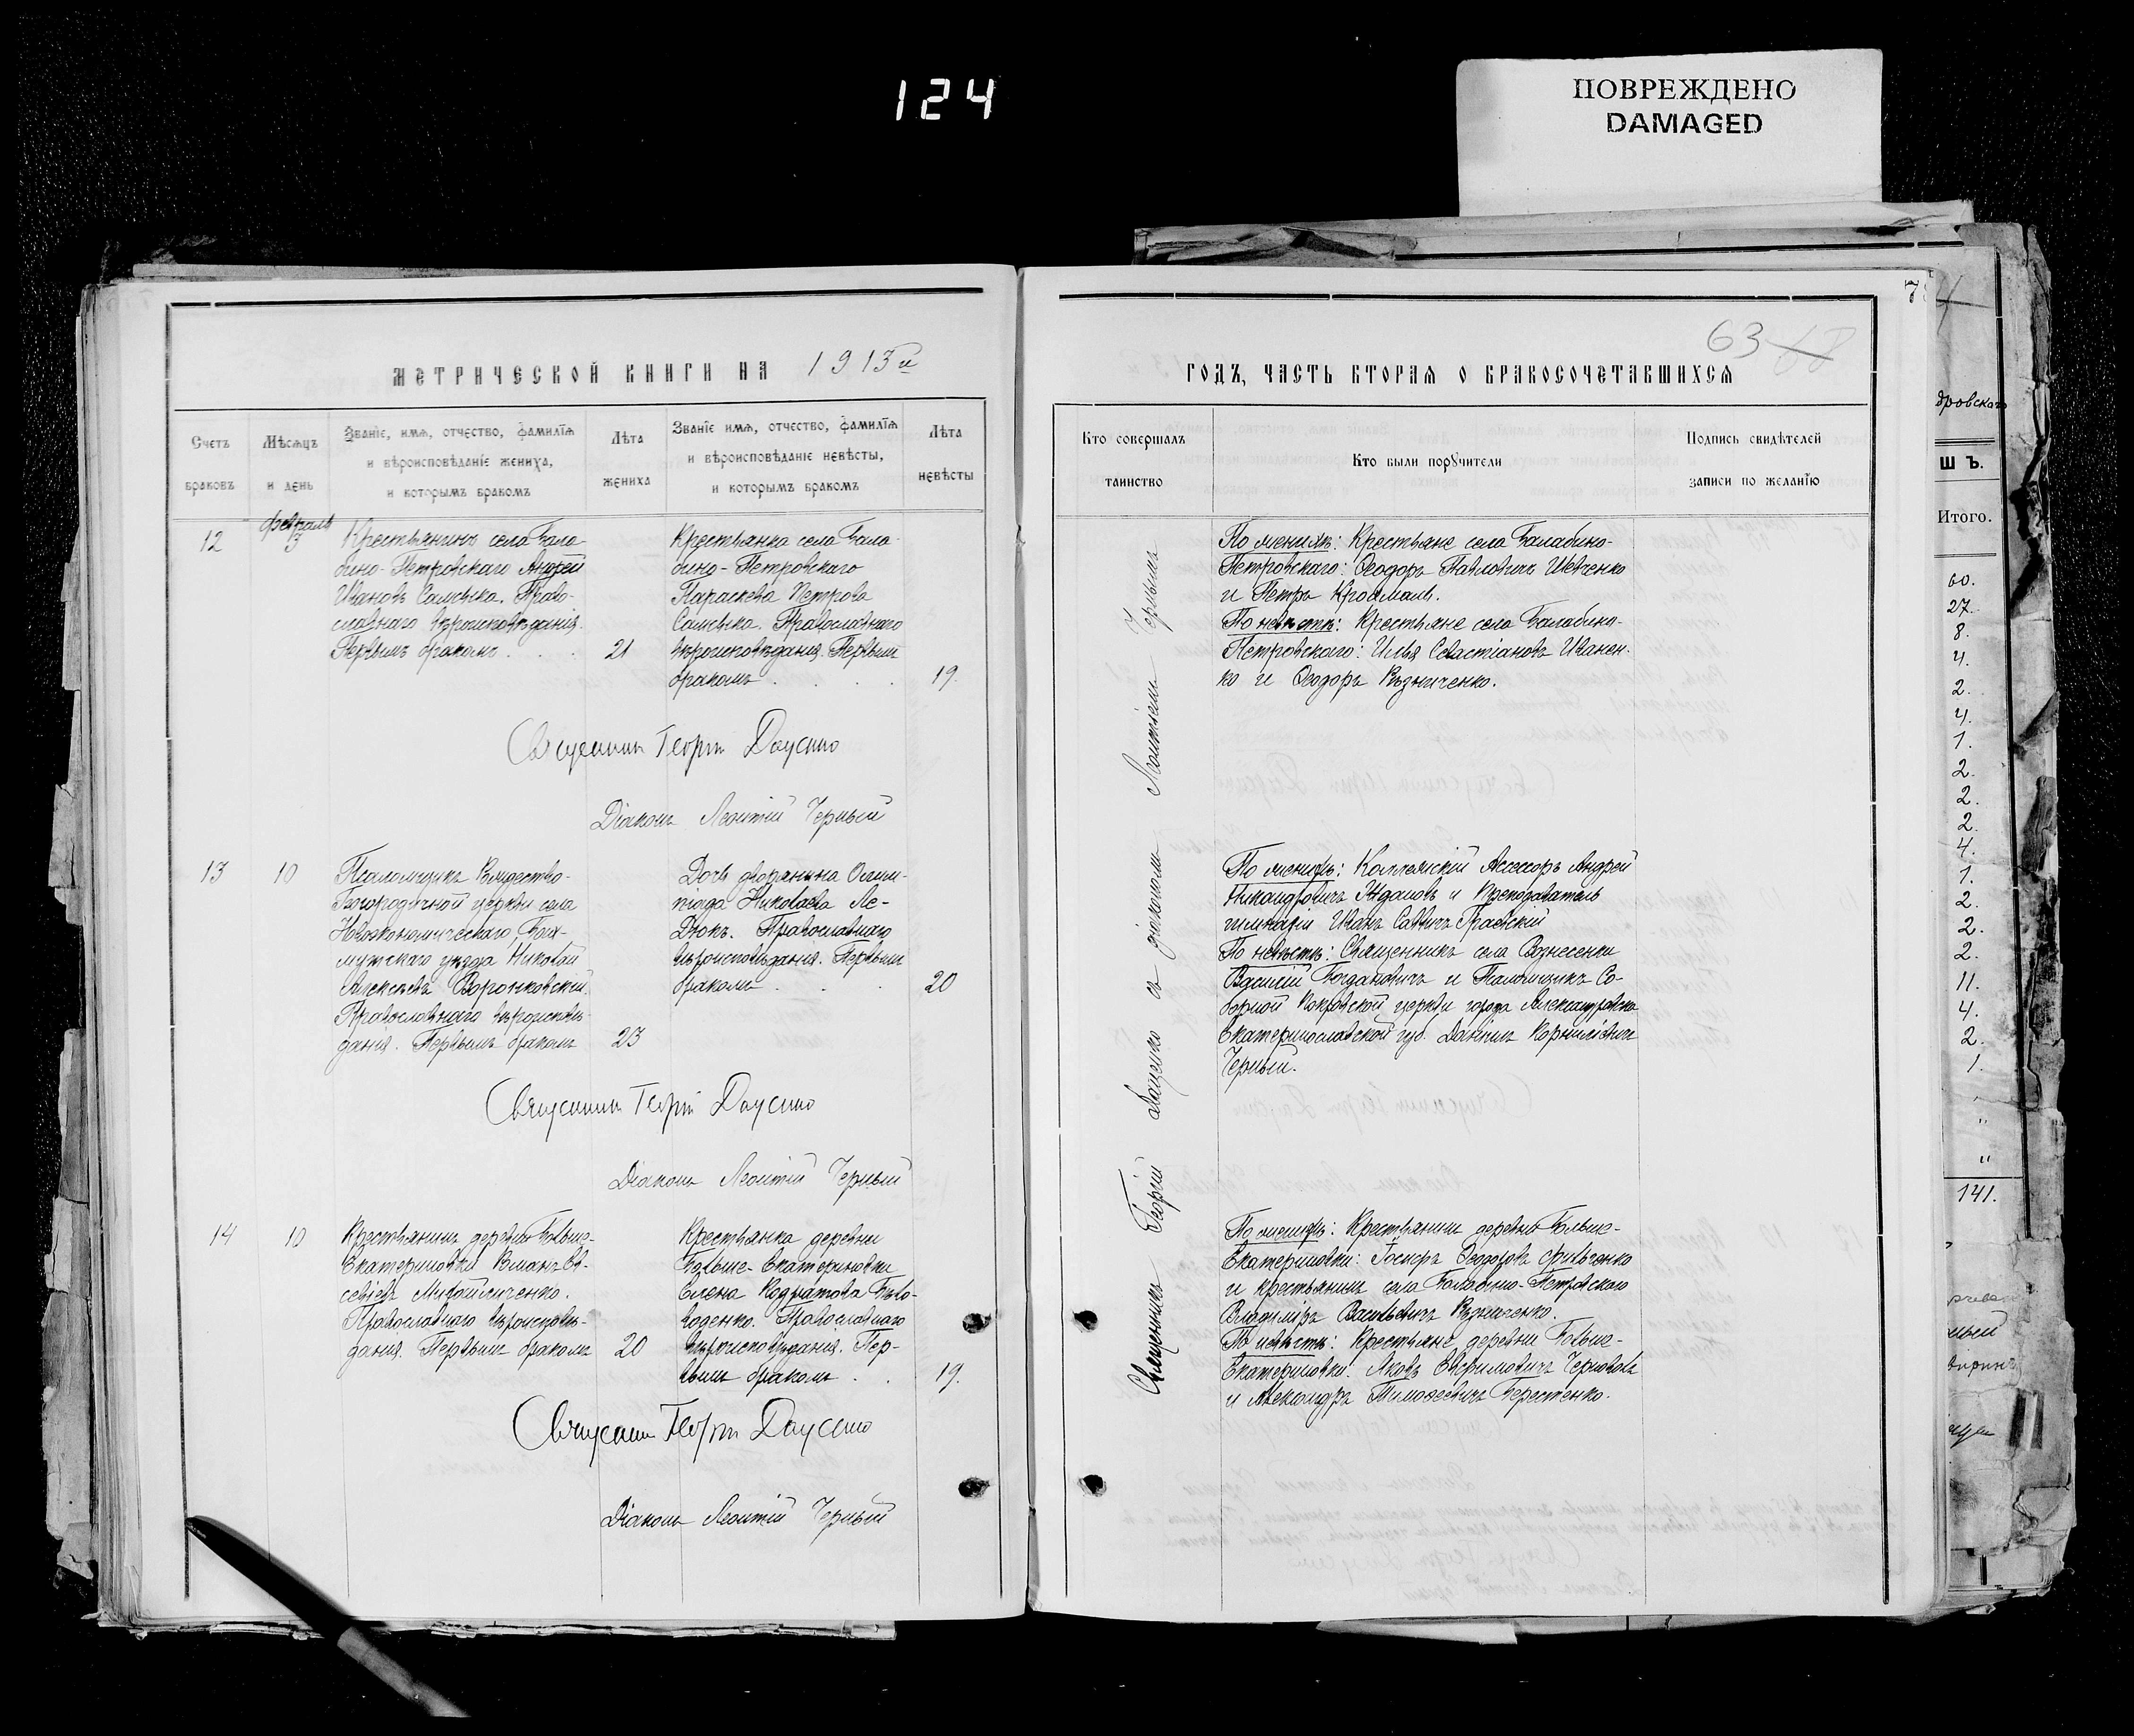 124
ПОВРЕЖДЕНО
DAMAGED
МЕТРИЧЕСКОЙ КНИГИ НА 1913й
Счетъ браковъ
Мѣсяцъ и день
Званіе, имя, отчество, фамилія и вѣроисповѣданіе жениха, и которымъ бракомъ
Лѣта жениха
Званіе имя, отчество, фамилія и вѣроисповѣданіе невѣсты, и которымъ бракомъ
Лѣта невѣсты
12
февраль
3
Крестьянинъ села Бала-
бино-Петровскаго Андрей
Ивановъ Самсыка. Право-
славнаго вѣроисповѣданія.
Первымъ бракомъ . . .
21
Крестьянка села Бала-
бино-Петровскаго
Параскева Петрова
Самсыка. Православнаго
вѣроисповѣданія. Первым
бракомъ . . . .
19.
Священник Георгій Доценко
Діаконъ Леонтій Черный
13
10
Псаломщикъ Рождество-
Богородичной церкви села
Новоэкономическаго, Бах-
мутскаго уѣзда Николай
Алексѣевъ Воронковскій.
Православнаго вѣроисповѣ-
данія. Первымъ бракомъ
23
Дочь дворянина Олим-
піада Николаева Ле-
Дюкъ. Православнаго
вѣроисповѣданія. Первым
бракомъ . . .
20
Священник Георгій Доценко
Діаконъ Леонтій Черный
14
10
Крестьянинъ деревни Больше-
Екатериновки Романъ Ев-
сеевъ Михайличенко.
Православнаго вѣроисповѣ-
данія. Первым бракомъ
20
Крестьянка деревни
Больше-Екатериновки
Елена Кодратова Бѣло-
воденко. Православнаго
вѣроисповѣданія. Пер-
вым бракомъ . .
19.
Священник Георгій Доценко
Діаконъ Леонтій Черный
7
63
68
ГОДЪ, ЧАСТЬ ВТОРАЯ О БРАКОСОЧЕТАВШИХСЯ
Кто совершалъ таинство
Кто были поручители
Подпись свидѣтелей записи по желанію
Священникъ Георгій Доценко съ діакономъ Леонтіемъ Чернымъ
По женихѣ: Крестьяне села Балабино-
Петровскаго: Ѳеодоръ Павловичъ Шевченко
и Петръ
По невѣстѣ: Крестьяне села Балабино-
Петровскаго: Илья Севастіановъ Иванен-
ко и Ѳеодоръ Рѣзниченко.
По женихѣ: Коллежскій Ассессоръ Андрей
Никандровичъ Ждановъ и Преподаватель
гимназіи Иванъ Саввичъ Граевскій
По невѣстѣ: Священникъ села Вознесенки
Василій Богдановичъ и Псаломщикъ Со-
борной Покровской церкви города Александровска
Екатеринославской губ. Даніилъ Корниліевичъ
Черный.
По женихѣ: Крестьянин деревни Больше-
Екатериновки: Іосифъ Ѳеодоровъ
и крестьянинъ села Балабино-Петровскаго
Владиміръ Васильевичъ Рѣзниченко.
По невѣстѣ: Крестьяне деревни Больше-
Екатериновки: Яковъ Евфимовичъ Черноволъ
и Александръ Тимофеевичъ Берестенко.
дровскаго
Ш Ъ.
Итого.
60.
27.
8.
4.
2.
4.
1.
2.
2.
2.
4.
1.
2.
2.
2.
11.
4.
2.
1.
"
"
141.